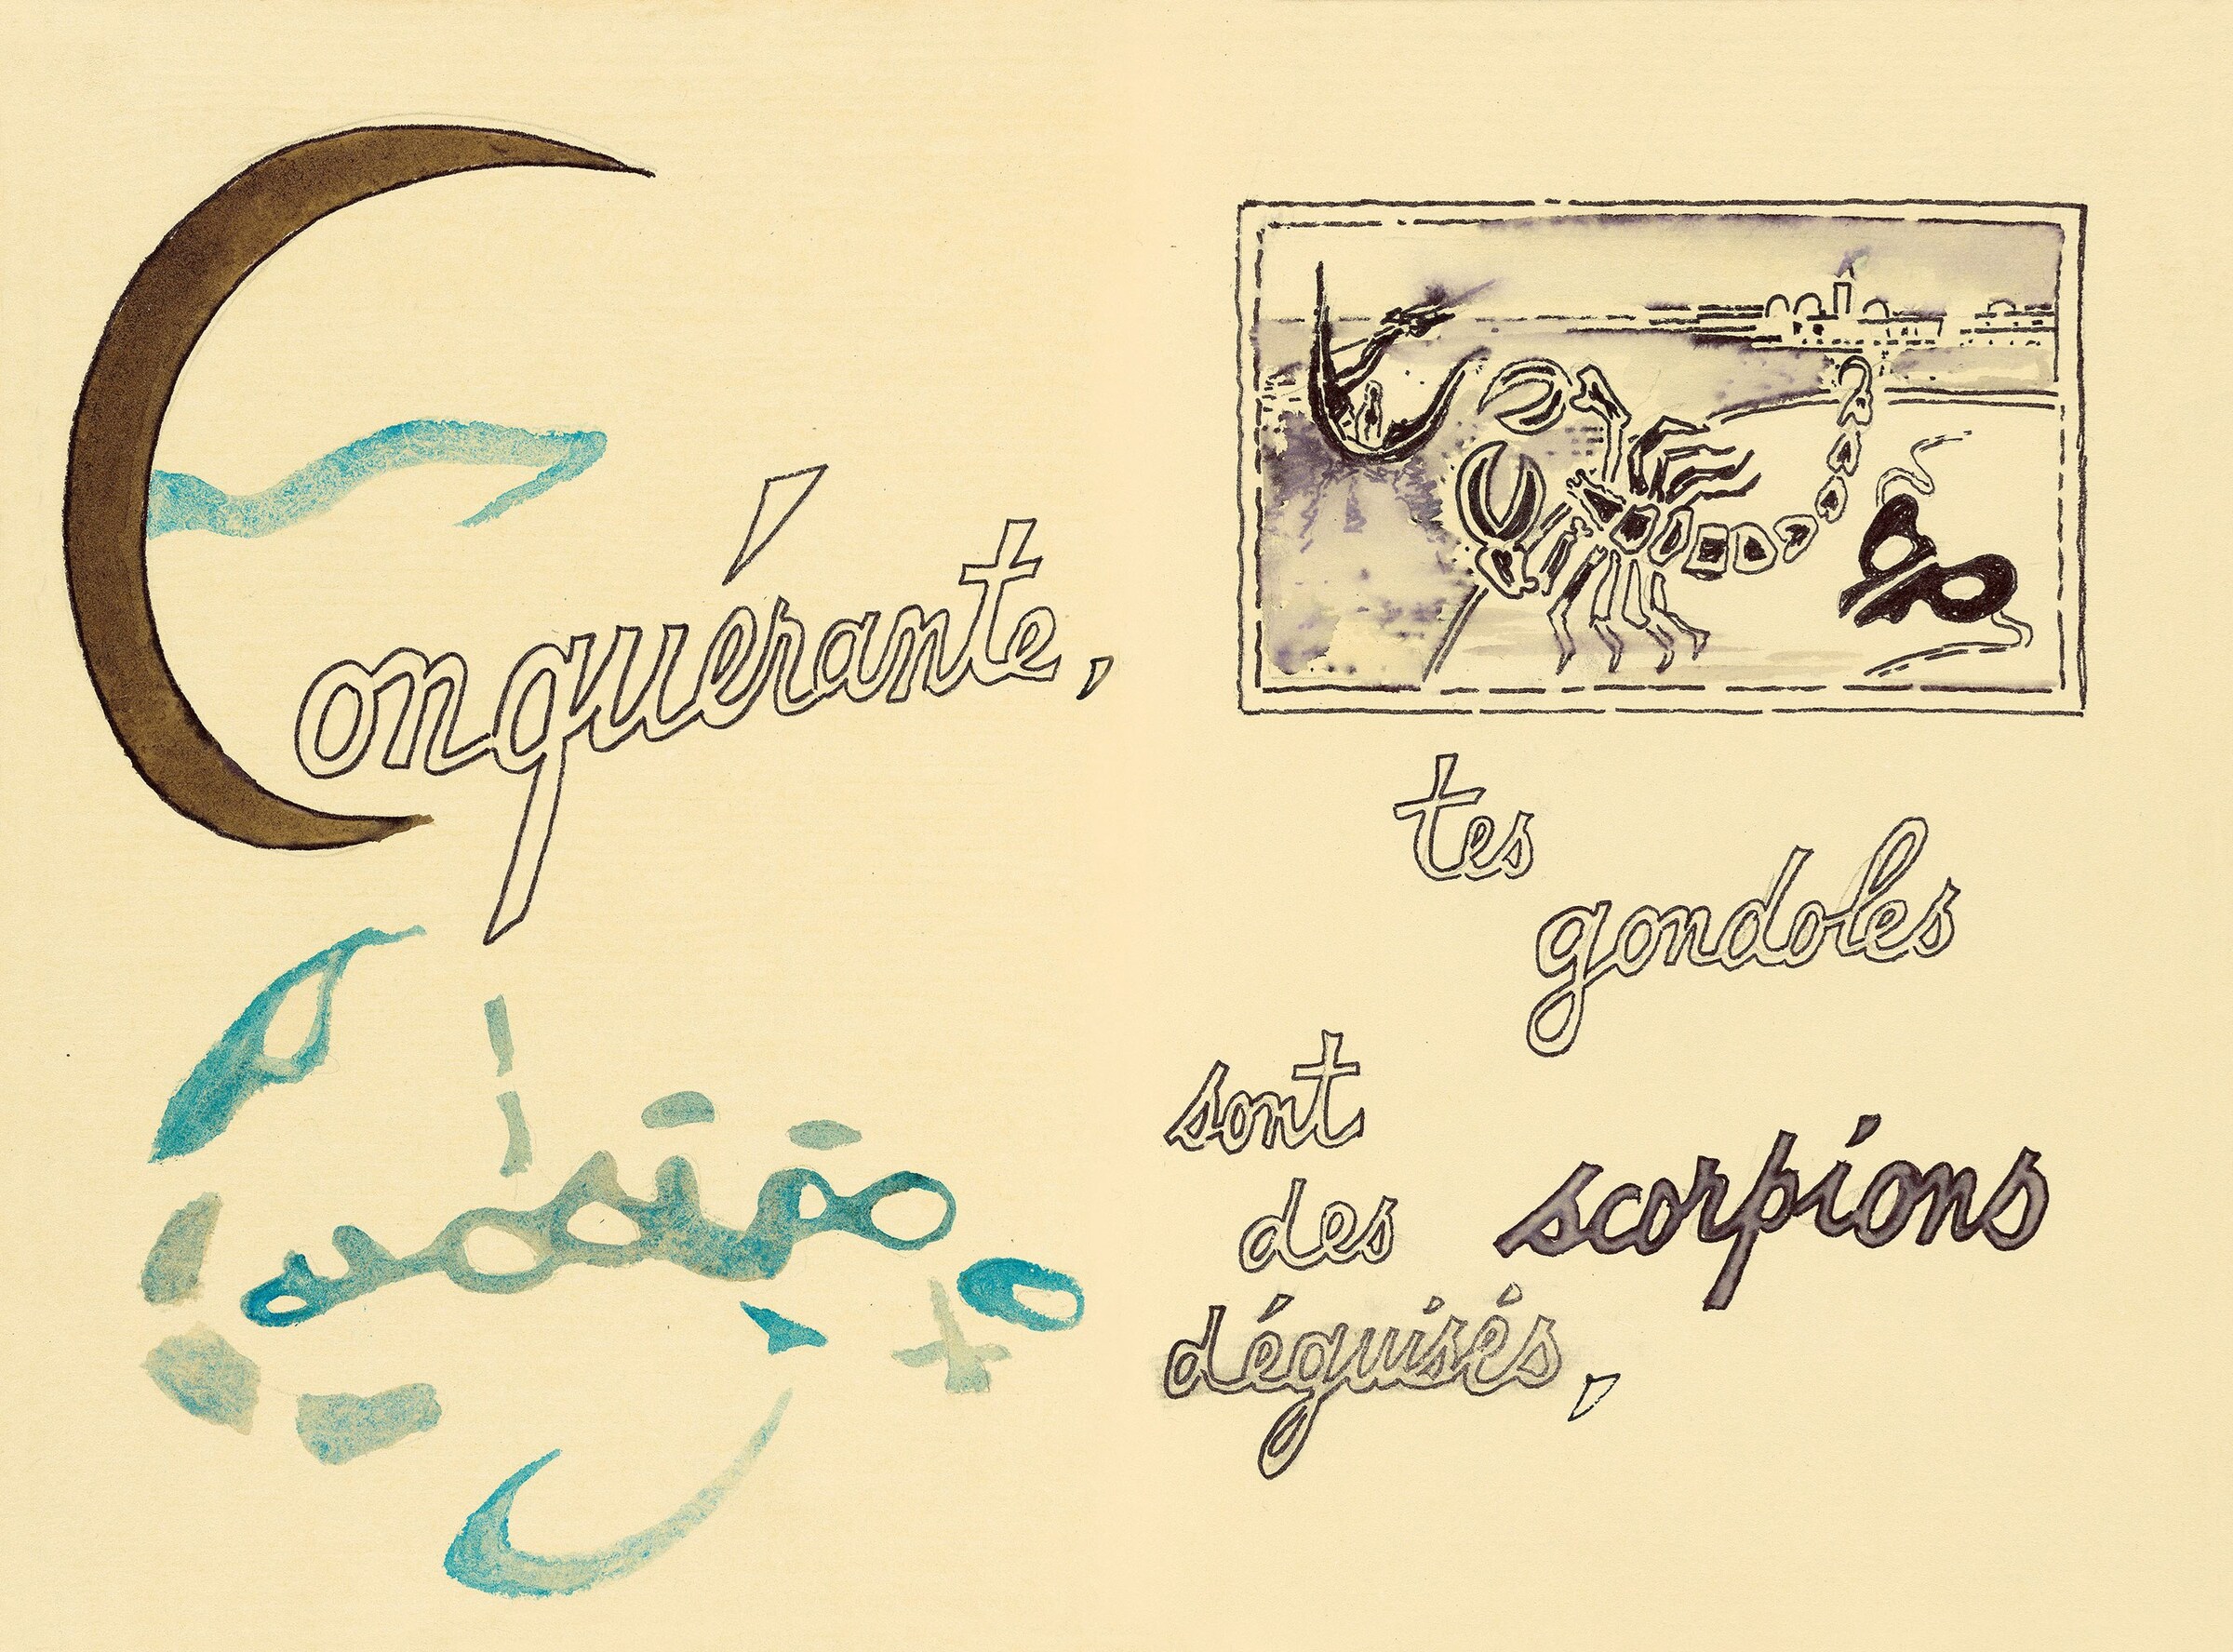 Conquérante,
tes
gondoles
sont
des scorpions
déguisés,